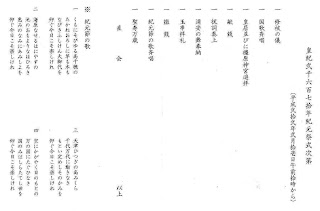 皇紀弐千六百七拾年紀元節式次第
(平成弐拾弐年弐月拾壱日午前拾時から)
一 修祓の儀
一 国歌斉唱
一 皇居並びに橿原神宮遥拝
一 献饌
一 祝詞奏上
一 浦安の舞奉納
一 玉串拝礼
一 撤饌
一 紀元節の歌斉唱
一 聖寿万歳
直会
以上
※ 紀元節の歌
一 くもにそびゆる高千穂の
高ねおろしに草も木も
なびきふしけん大御代を
仰ぐ今日こそ楽しけれ
二 海原なせるはにやすの
池のおもよりなほひろき
恵みのなみにあみし世を
仰ぐ今日こそ楽しけれ
三 天津ひつぎの高みくら
千代よろずよに動きなき
もとい定めしそのかみを
仰ぐ今日こそ楽しけれ
四 空にかがやく日のもとの
万の国にたぐいなき
国のみはしらたてし世を
仰ぐ今日こそ楽しけれ